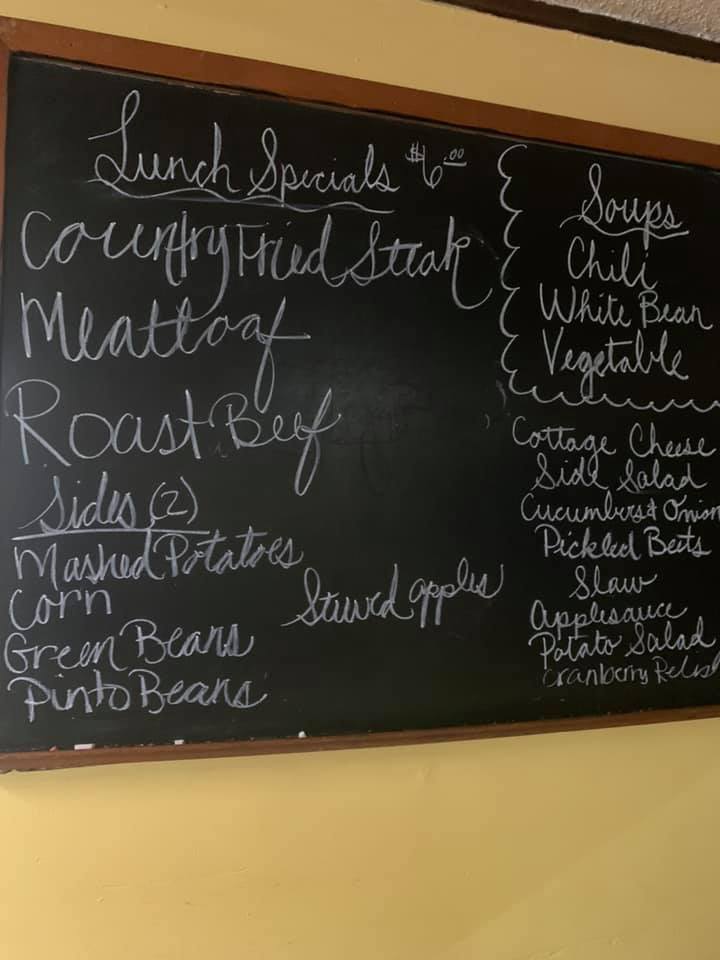 Lunch Specials $6.00
Country Fried Steak
Meatloaf
Roast Beef
Sides (2)
Mashed Potatoes
Corn
Stewed apples
Green Beans
Pinto Beans
Soups
Chili
White Bean
Vegetable
Cottage Cheese
Side Salad
Cucumbers & Onion
Pickled Beets
Slaw
Applesauce
Potato Salad
Cranberry Relish